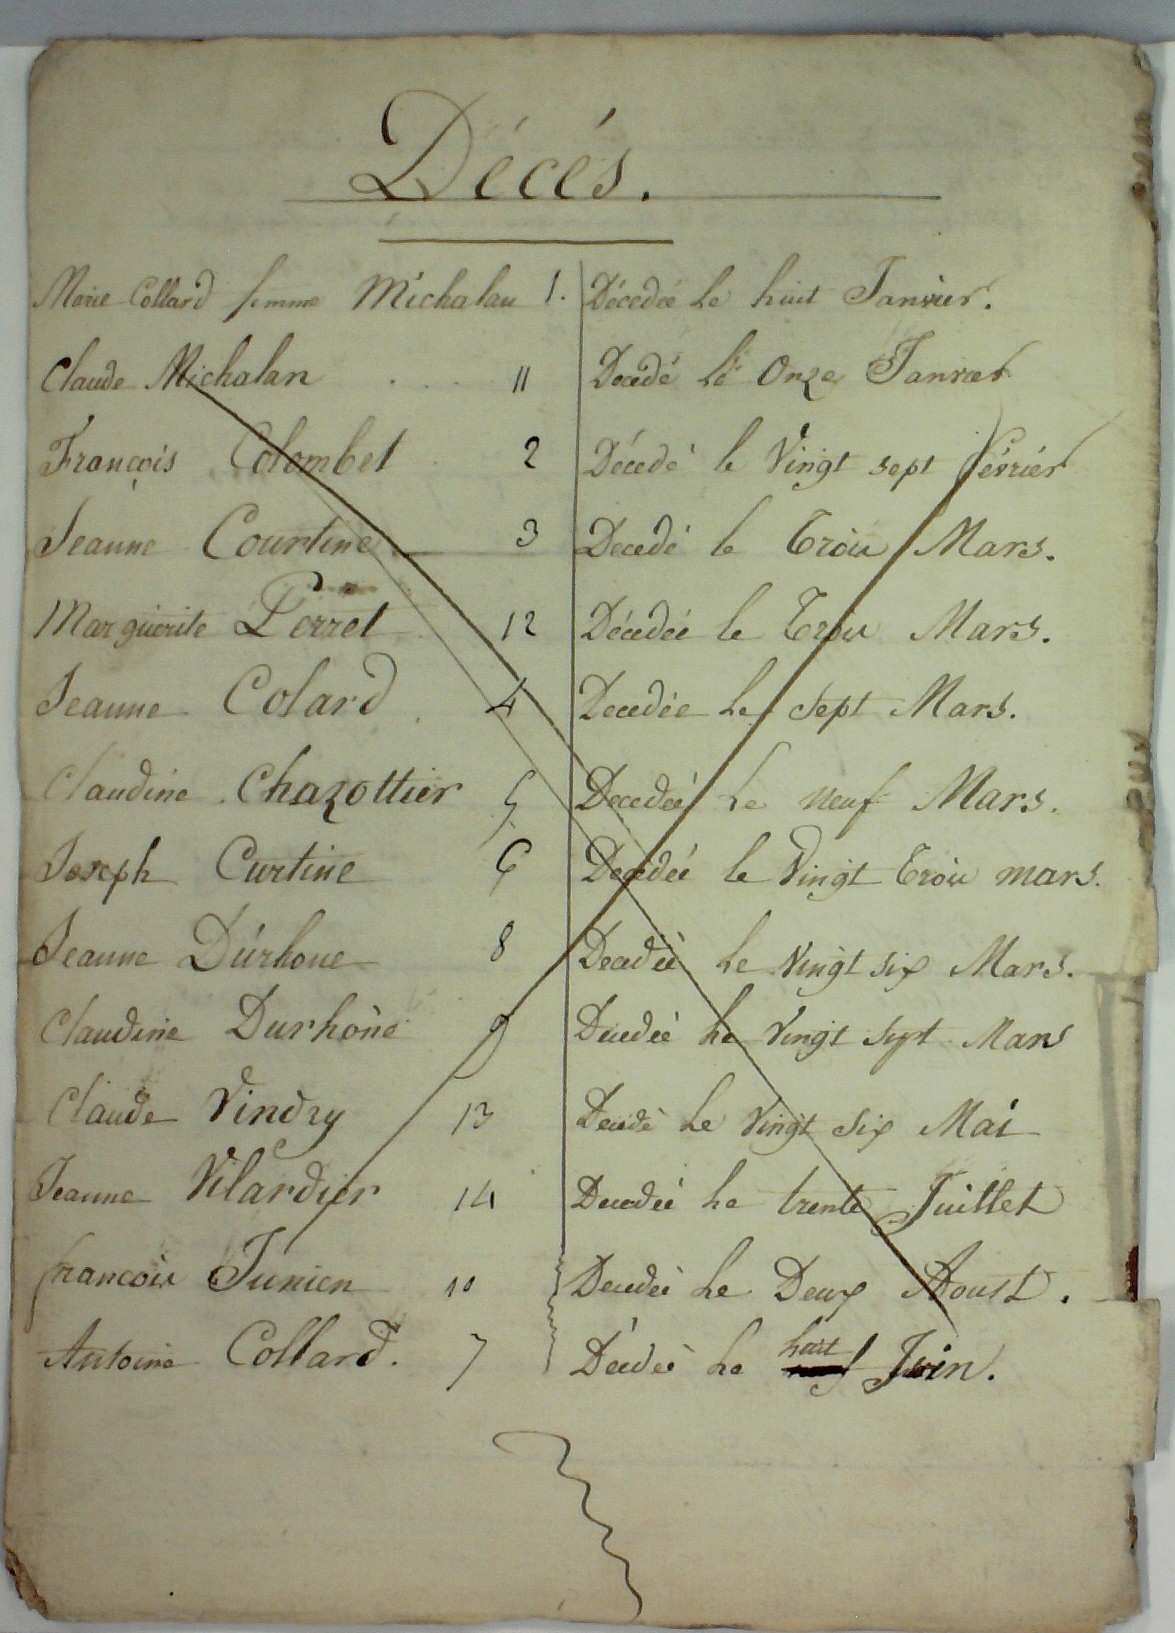 Décés.
Marie Collard femme Michalan 1. Décedée Le huit Janvier.
Claude Michalan .... 11 Decédé Le Onze Janvier
François Colombet 2 Décedé le Vingt sept Février
Jeanne Courtine 3 Decedé le Trois Mars.
Marguerite Perret 12 Décedée le Trois Mars.
Jeanne Colard 4 Decedée Le Sept Mars.
Claudine Chazottier 5 Decedée Le neuf Mars.
Joseph Curtine 6 Decedée le Vingt Trois mars.
Jeanne Dúrhone 8 Decedée Le Vingt six Mars.
Claudine Durhône 9 Decedée Le Vingt Sept Mars
Claude Vindry 13 Decedé Le Vingt Six Mai
Jeanne Vilardier 14 Decedée Le trente Juillet
francois Junien 10 Decedée Le Deux Aoust.
Antoine Collard. 7 Décedeé Le huit Juin.